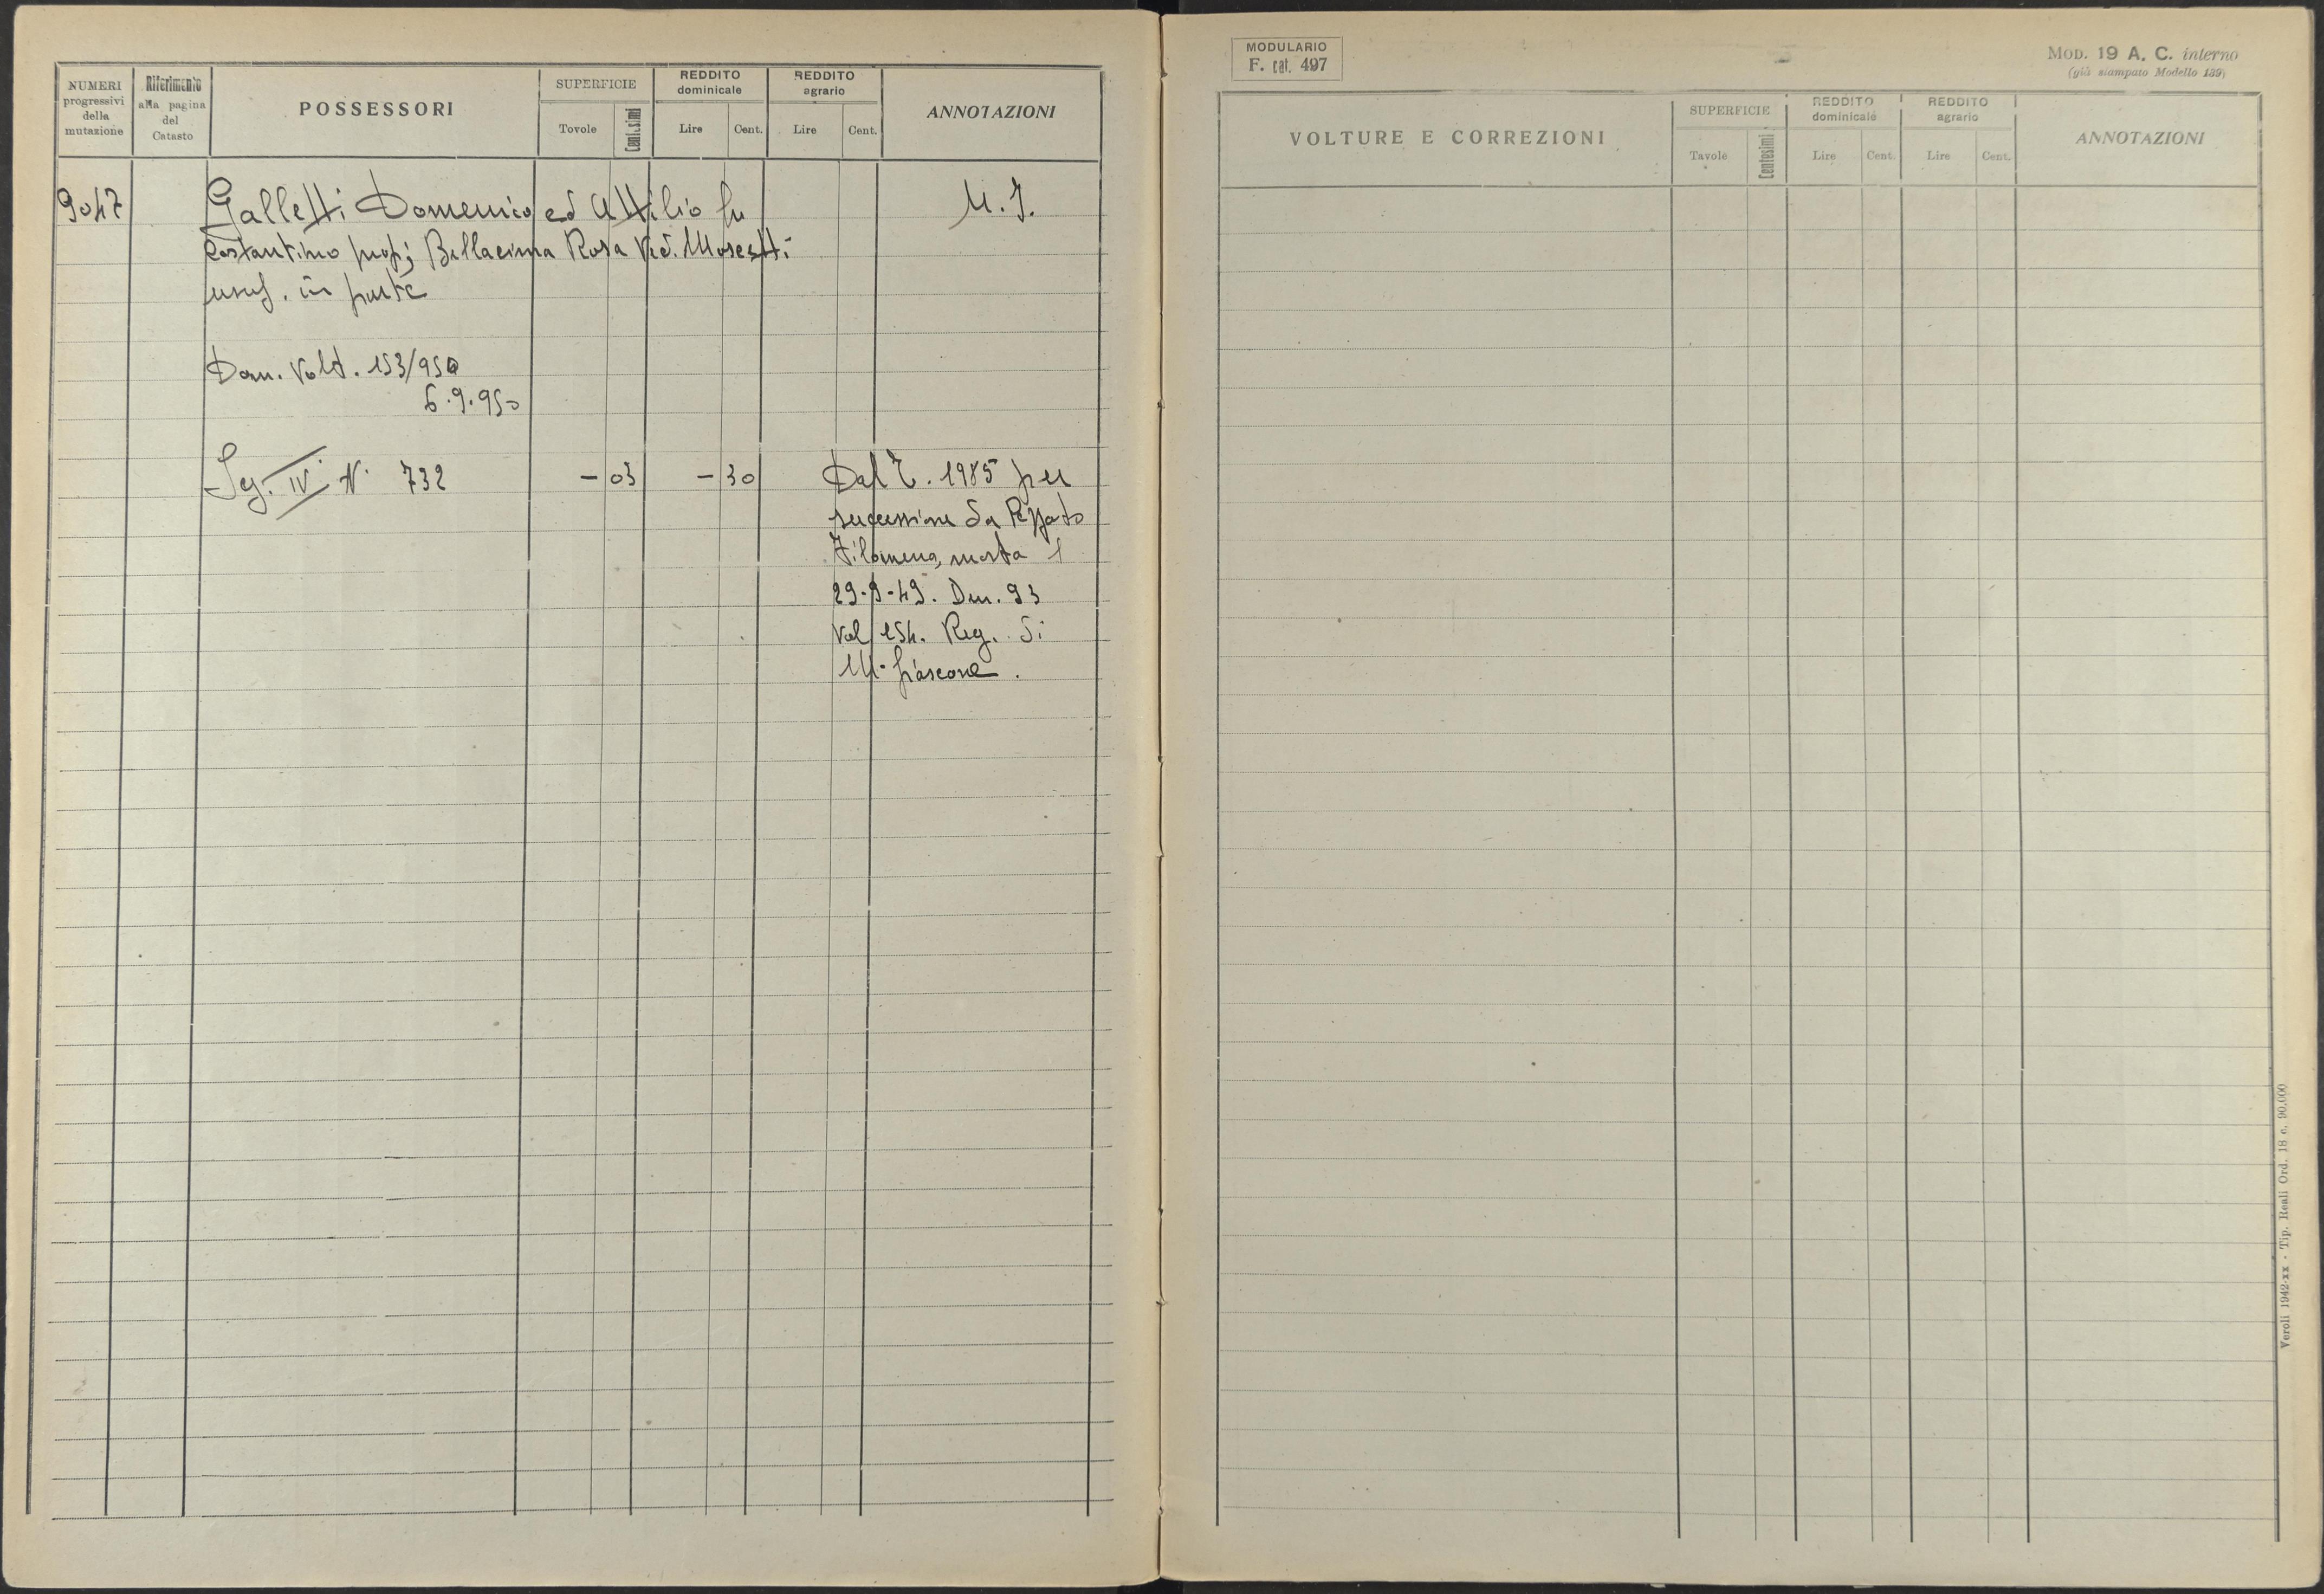 NUMERI progressivi della mutazione
Riferimento alla pagina del Catasto
POSSESSORI
SUPERFICIE
Tovole
Centesimi
REDDITO dominicale
Lire
Cent.
REDDITO agrario
Lire
Cent.
ANNOTAZIONI
9047
Galletti Domenico ed Attilio fu
M. I.
Costantino prop; Bellacima Rosa Ved. Mosesti
usuf. in parte
Dom. Volt. 153/950
6.9.950
Seg. IV N. 732
- 03
- 30
Dal T. 1985 per
successione da Pezzato
Filomena, morta l
29-9-49. Den. 93
Vol 154. Reg. di
M. fiascone.
MODULARIO
F. cat. 497
MOD. 19 A. C. interno
(già stampato Modello 139)
VOLTURE E CORREZIONI
SUPERFICIE
Tavole
Centesimi
REDDITO dominicale
Lire
Cent.
REDDITO agrario
Lire
Cent.
ANNOTAZIONI
Veroli 1942-xx - Tip. Reali Ord. 18 c. 90.000